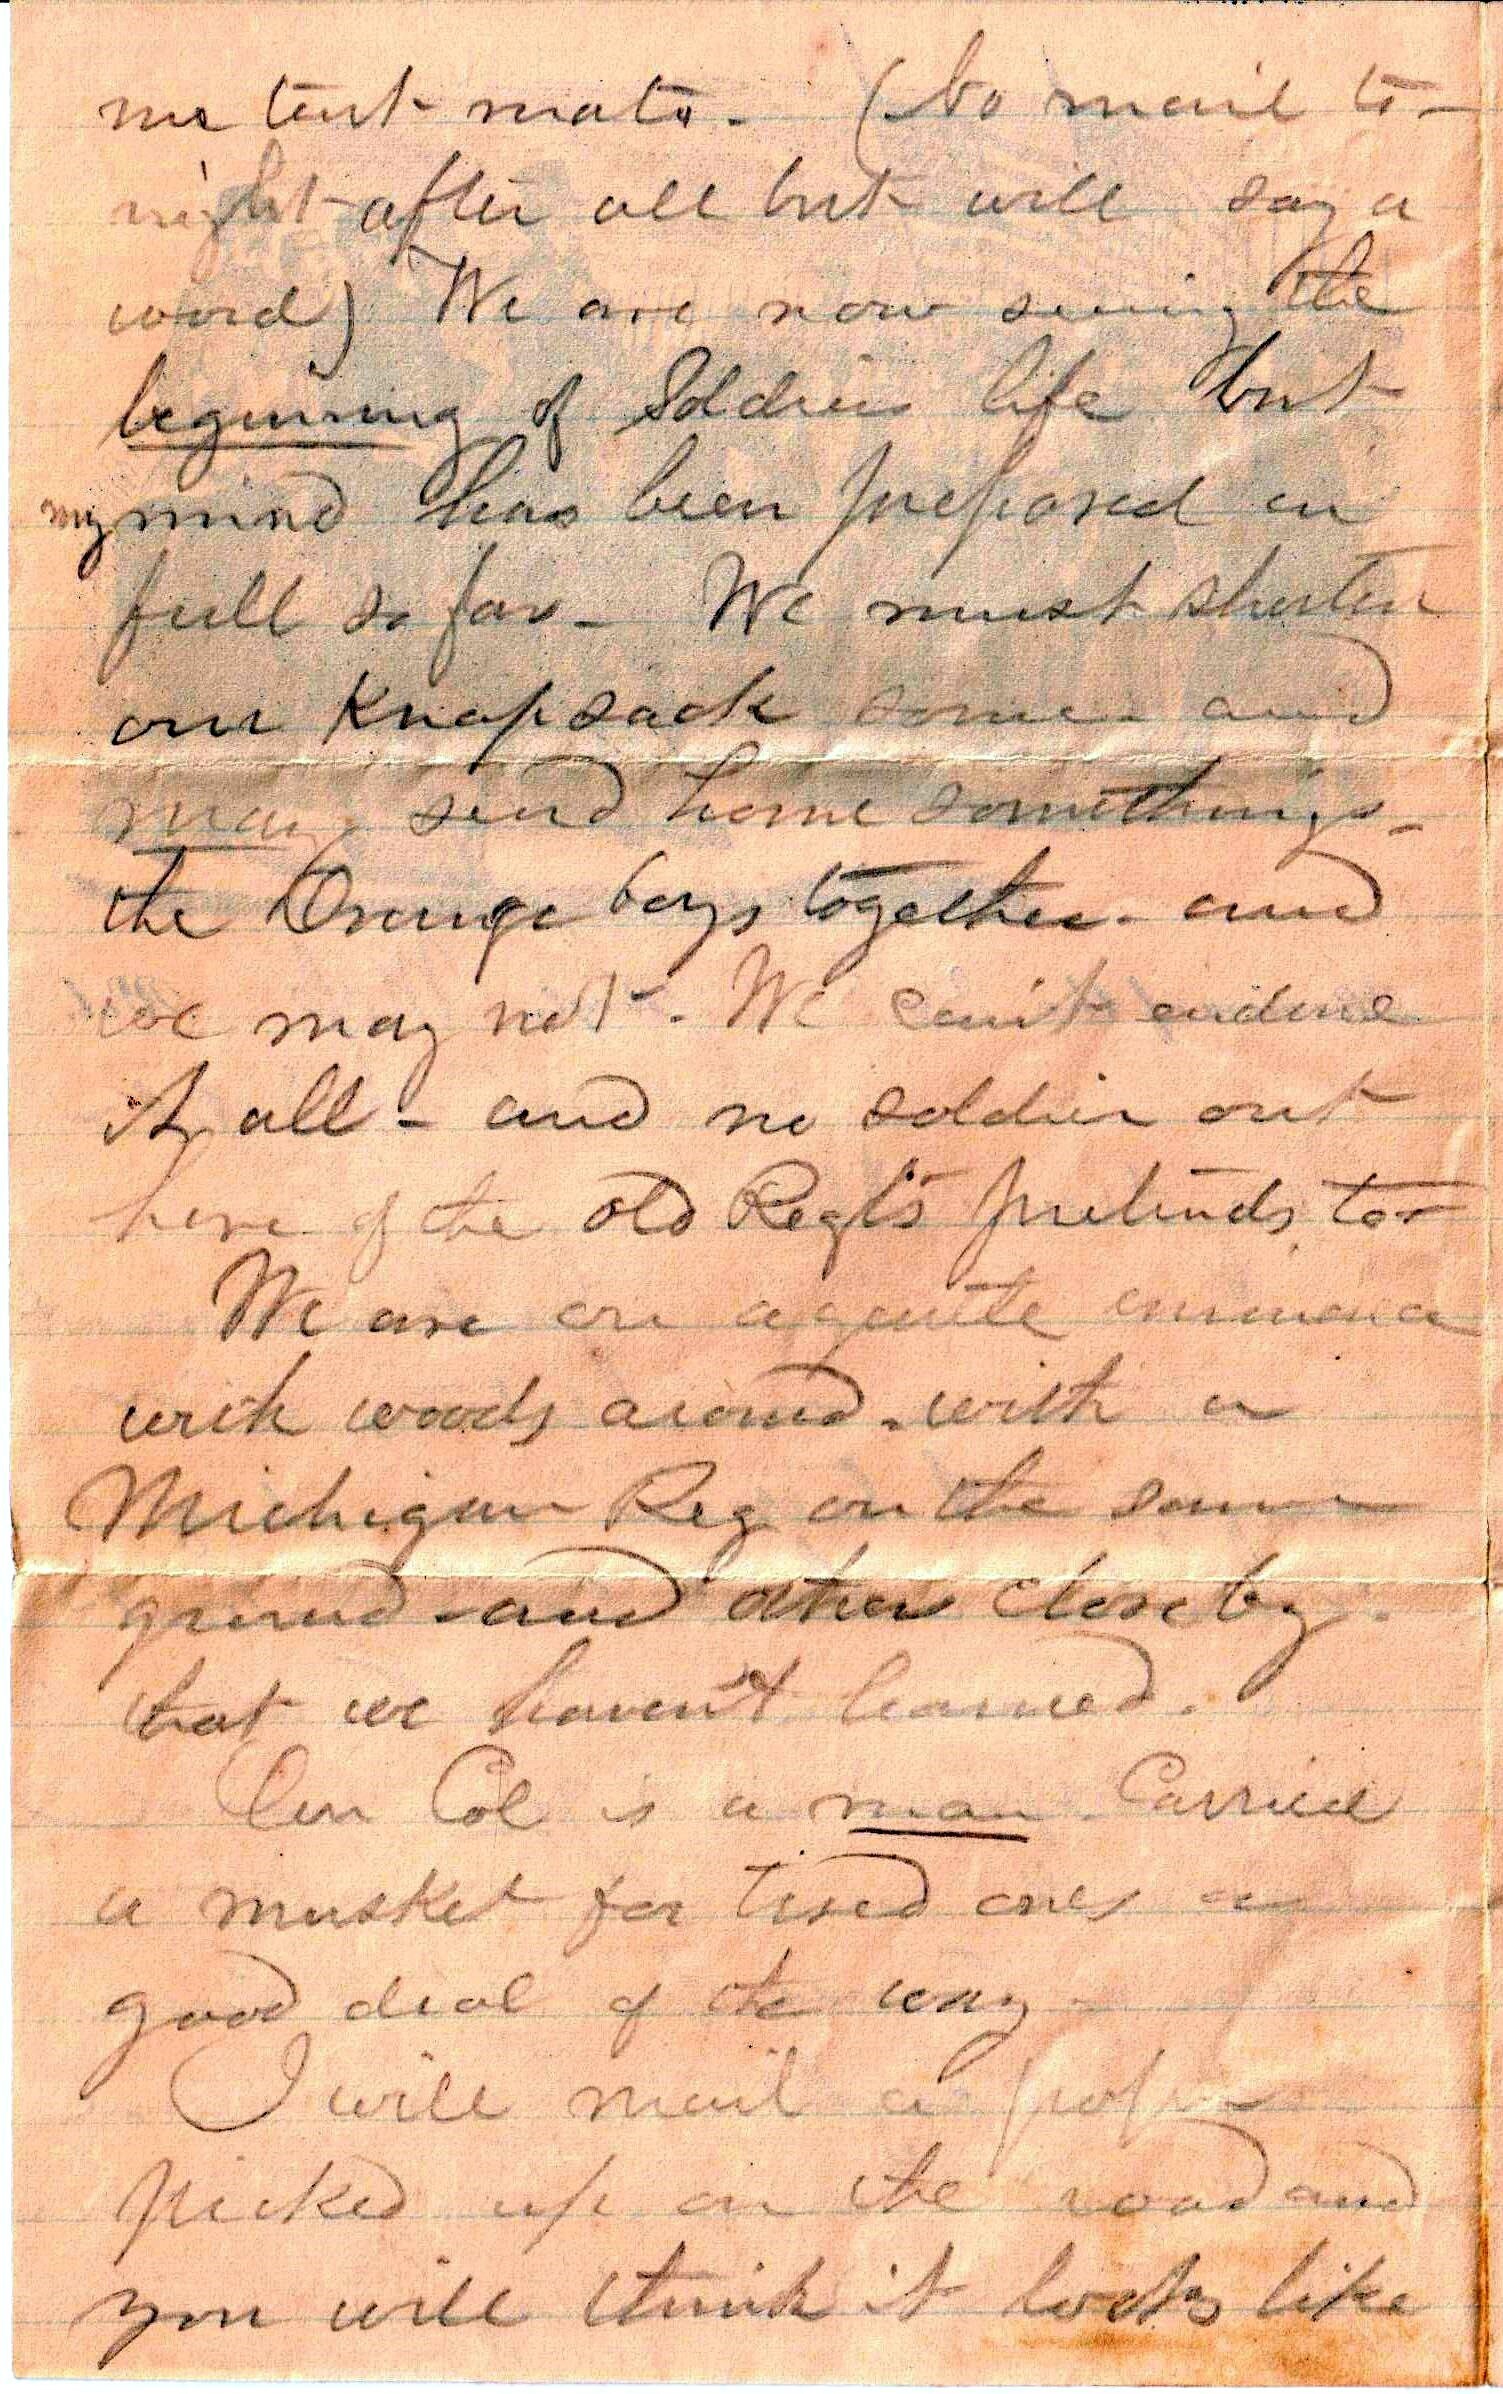 me tent mate. (No mail to-
night after all but will say a
word) We are now seeing the
beginning of Soldiers life but
my mind has been prepared in
full so far - We must shorten
our Knapsack some and
may send home somethings -
the Orange boys together - and
we may not. We can't endure
it all - and no soldier out
here of the old Regts pretends to -
We are on a quite
with woods around - with a
Michigan Reg on the same
ground - and others close by.
that we haven't learned.
Our Col is a man. Carried
a musket for tired ones a
good deal of the way -
I will mail a paper
picked up on the road and
you will think it looks like